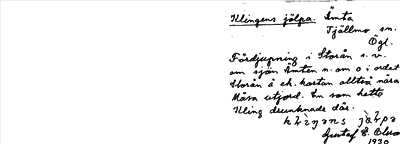 Klingens jölpa. Ämta
Tjällmo sn.
Ögl.
Fördjupning i Storån s.v.
om sjön Ämten n. om o i ordet
Storån å ek. kartan alltså nära
Måsa utjord. En som hette
Kling drunknade där.
Gustaf E. Olsson
1930